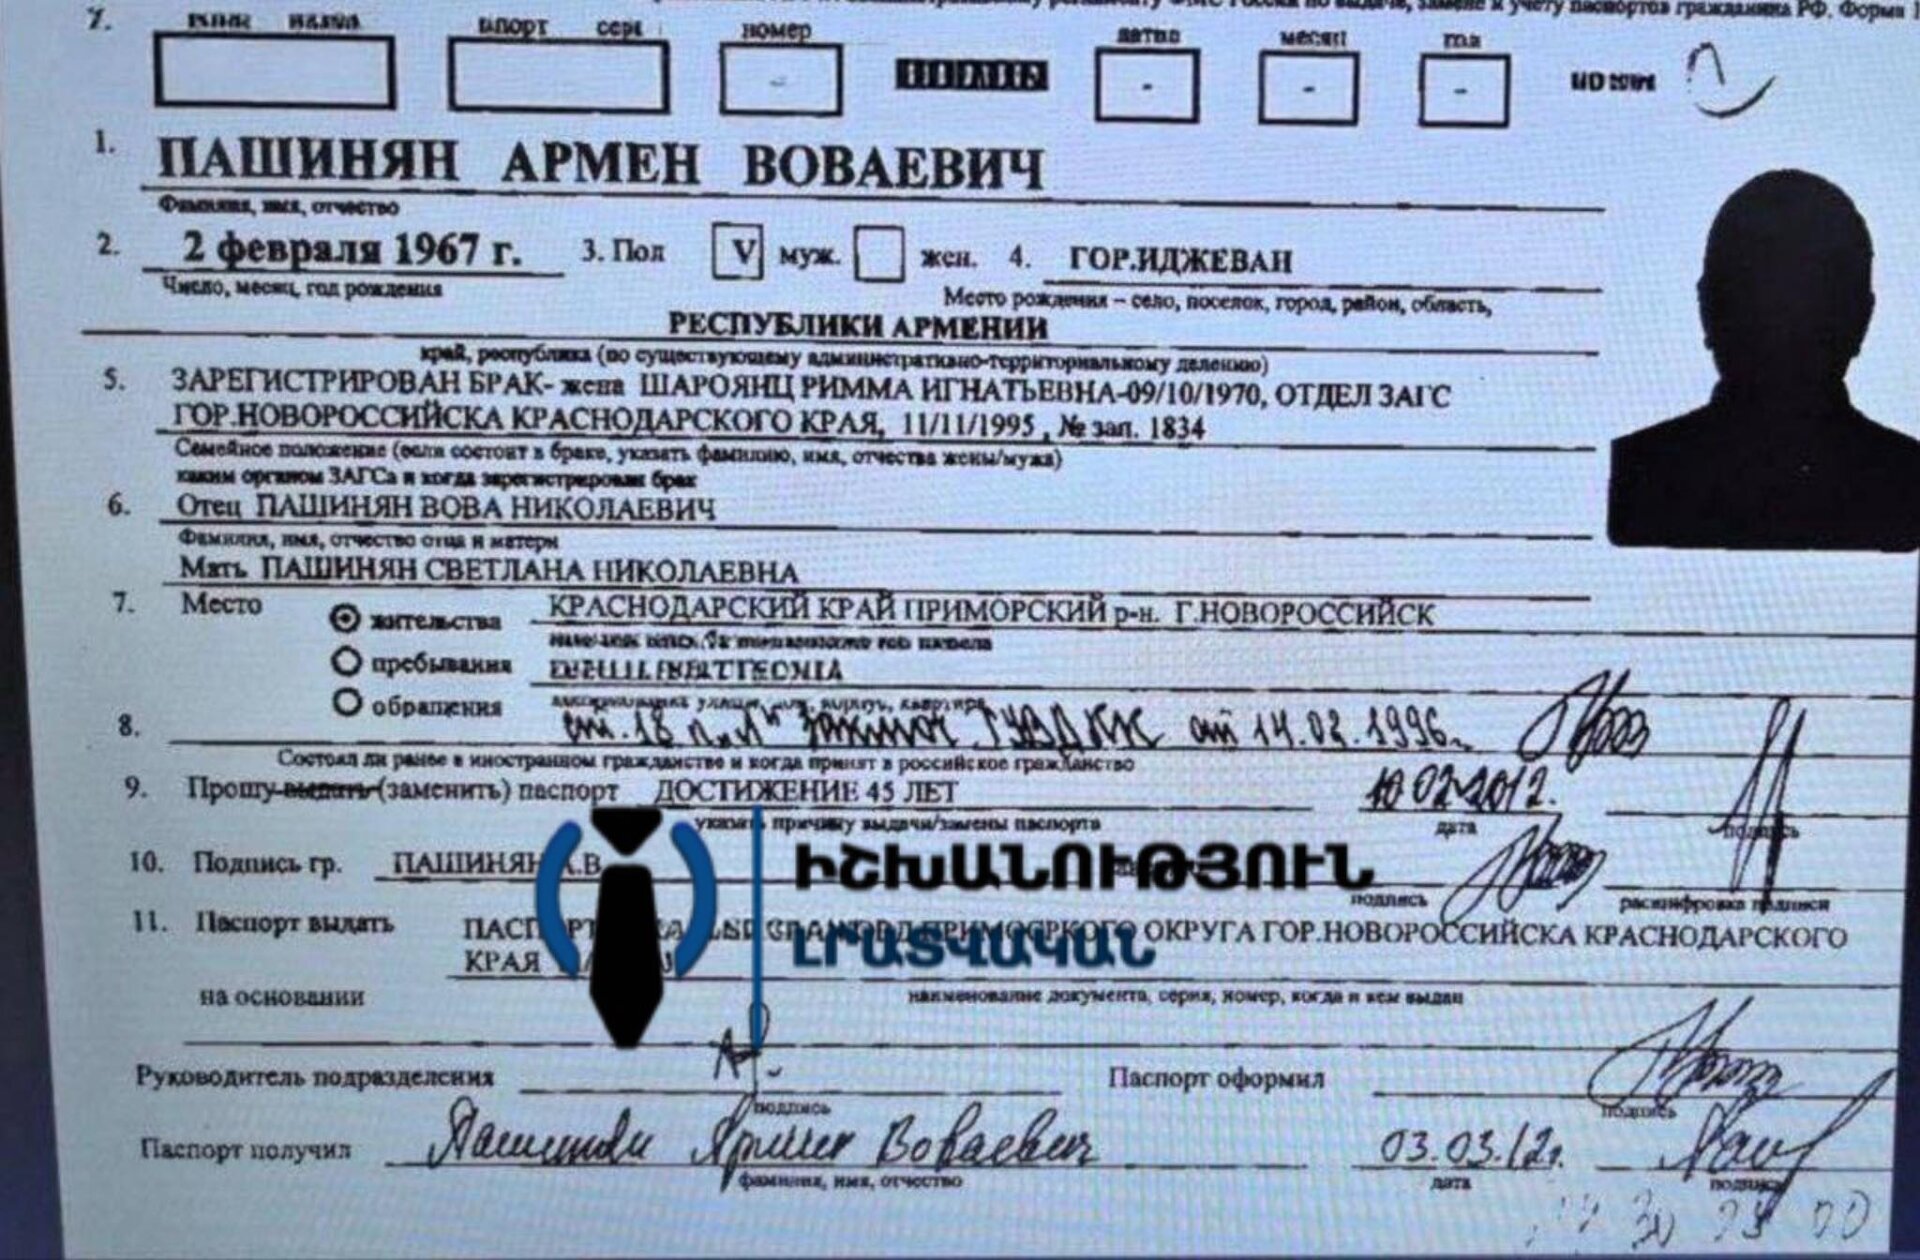 ФМС России по выдаче, замене и учету паспортов гражданина РФ. Форма 1
номер
месяц
1. ПАШИНЯН АРМЕН ВОВАЕВИЧ
Фамилия, имя, отчество
2. 2 февраля 1967 г. 3. Пол V муж. жен. 4. ГОР.ИДЖЕВАН
Число, месяц, год рождения
Место рождения – село, поселок, город, район, область,
РЕСПУБЛИКИ АРМЕНИИ
край, республика (по существующему административно-территориальному делению)
5. ЗАРЕГИСТРИРОВАН БРАК- жена ШАРОЯНЦ РИММА ИГНАТЬЕВНА-09/10/1970, ОТДЕЛ ЗАГС
ГОР.НОВОРОССИЙСКА КРАСНОДАРСКОГО КРАЯ, 11/11/1995 , № зап. 1834
Семейное положение (если состоит в браке, указать фамилию, имя, отчества жены/мужа)
каким органом ЗАГСа и когда зарегистрирован брак
6. Отец ПАШИНЯН ВОВА НИКОЛАЕВИЧ
Фамилия, имя, отчество отца и матери
Мать ПАШИНЯН СВЕТЛАНА НИКОЛАЕВНА
7. Место жительства КРАСНОДАРСКИЙ КРАЙ ПРИМОРСКИЙ р-н. Г.НОВОРОССИЙСК
пребывания
обращения
8. ст. 18 п. ГУВД КК от 14.02.1996г.
Состоял ли ранее в иностранном гражданстве и когда принят в российское гражданство
9. Прошу выдать (заменить) паспорт ДОСТИЖЕНИЕ 45 ЛЕТ 10 02 2012.
указать причину выдачи/замены паспорта дата подпись
10. Подпись гр. ПАШИНЯН А.В
подпись расшифровка подписи
ԻՇԽԱՆՈՒԹՅՈՒՆ
ԼՐԱՏՎԱԿԱՆ
11. Паспорт выдать ОКРУГА ГОР.НОВОРОССИЙСКА КРАСНОДАРСКОГО
КРАЯ
на основании наименование документа, серия, номер, когда и кем выдан
Руководитель подразделения Паспорт оформил
подпись подпись
Паспорт получил Пашинян Армен Воваевич 03.03.12г.
фамилия, имя, отчество дата подпись